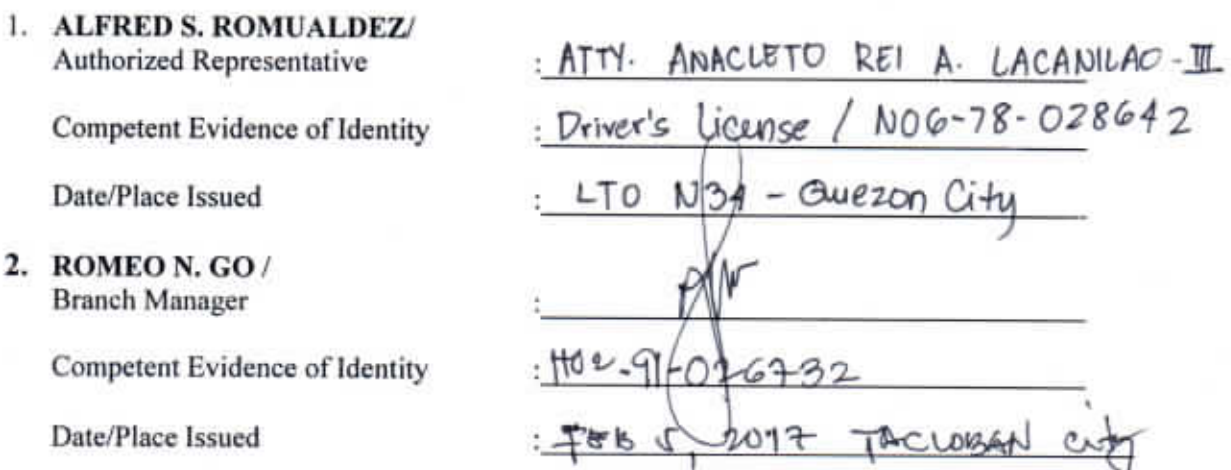 1. ALFRED S. ROMUALDEZ/
Authorized Representative : ATTY. ANACLETO REI A. LACANILAO-III
Competent Evidence of Identity : Driver's License / N06-78-028642
Date/Place Issued : LTO N34 - Quezon City
2. ROMEO N. GO /
Branch Manager :
Competent Evidence of Identity : H02-91-026732
Date/Place Issued : FEB 5, 2017 TACLOBAN city